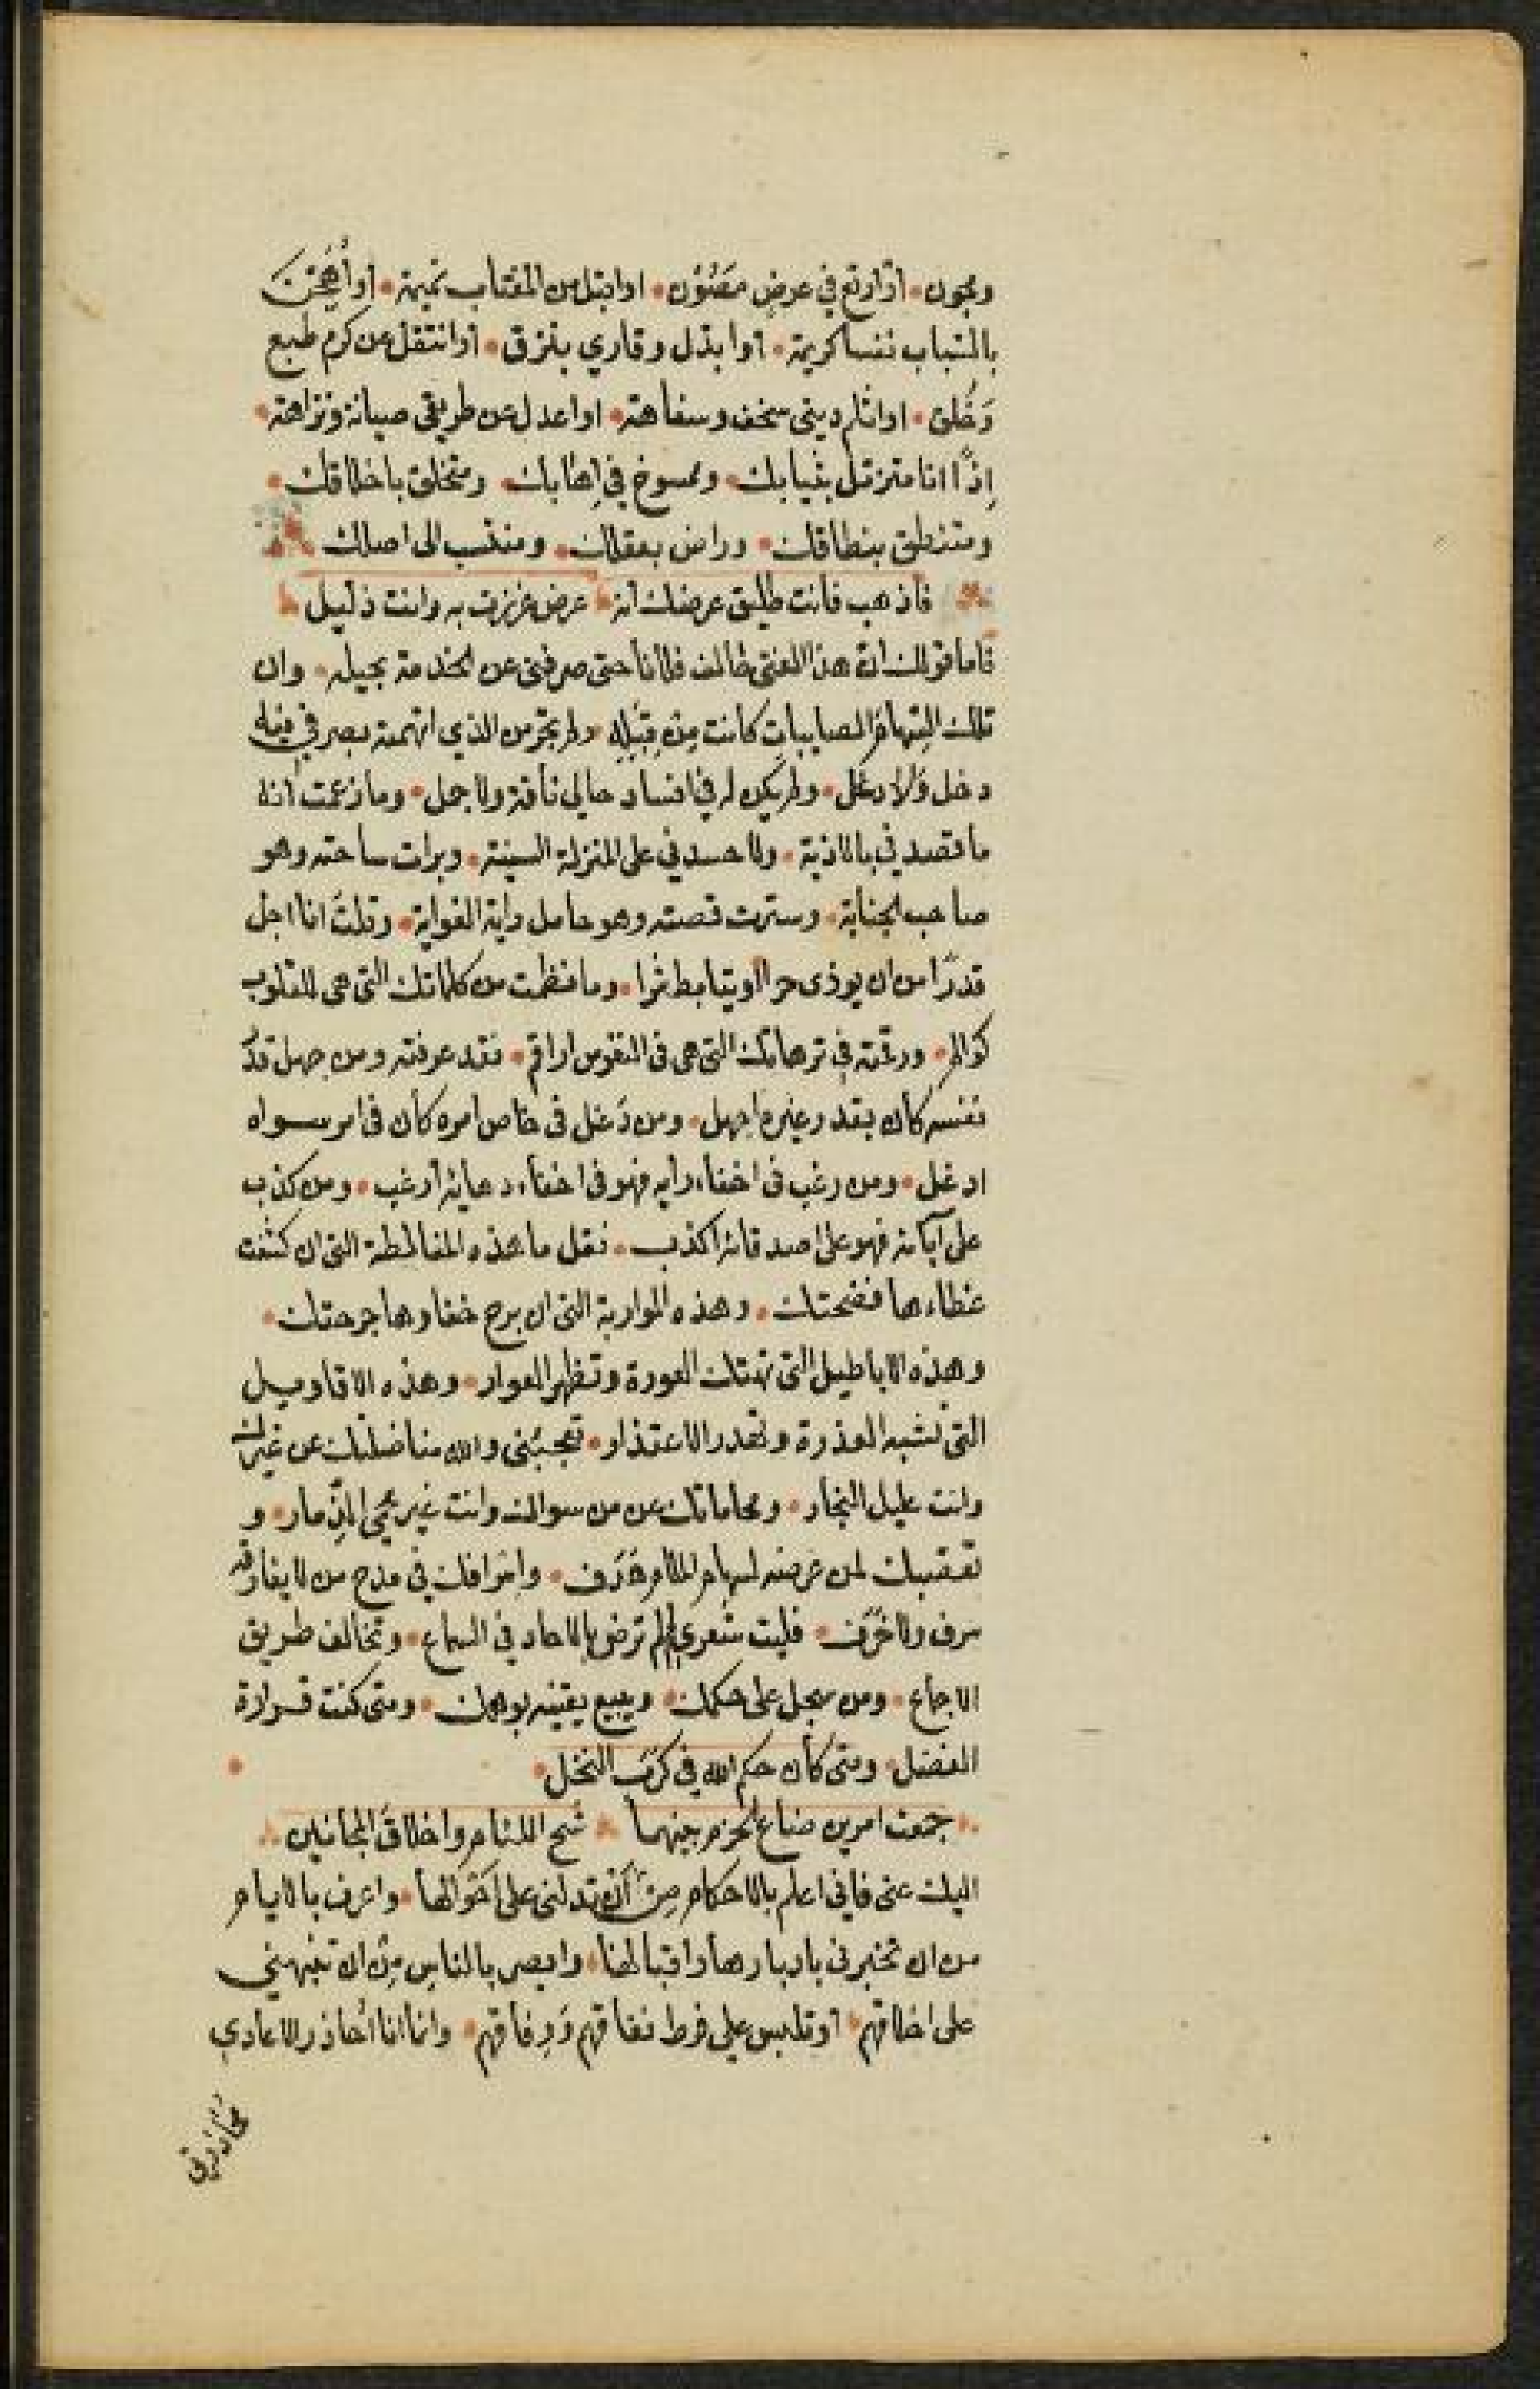 ومجون • اوارتع في عرض مصون • او اقبل من المغتاب نميمة • او أهجّن
بالسباب نفسا كريمة • أو ابذل وقاري بنزق • او انتقل عن كرم طبع
وخلق • او اثلم ديني بسخف وسفاهة • او اعدل عن طريقى صيانة ونزاهة •
إذًا انا متزمل بثيابك • وممسوخ في إهابك • ومتخلق باخلاقك •
ومتنطق بنطاقك • وراض بعقلك • ومنتسب الى اصلك
فاذهب فانت طليق عرضك انه • عرض عززت به وانت ذليل
فاما قولك ان هذا المعنى خالف فلانا حتى صرفنى عن الخدمة بحيله • وان
تلك السهام الصايبات كانت من قبله • ولم يجر من الذي اتهمته بصرفي فيه
دخل ولا دغل • ولم يكن له في افساد حالي ناقة ولا جمل • وما زعمت أنه
ما قصدني بالاذية • ولا حسدني على المنزلة السنية • وبرات ساحته وهو
صاحب الجناية • وسترت قصته وهو حامل راية الغواية • وقلت انا اجل
قدرًا من ان يوذى حرا او يتابط شرا • وما نظمت من كلماتك التى هى للقلوب
كوالم • ورقمته في ترهاتك التى هى فى النفوس اراقم • فقد عرفته ومن جهل قدر
نفسه كان بقدر غيره اجهل • ومن دغل فى خاص امره كان فى امر سواه
ادغل • ومن رغب فى اخفاء رأيه فهو فى اخفاء دهائه أرغب • ومن كذب
على آبائه فهو على اصدقائه اكذب • فقل ما هذه المغالطة التى ان كشفت
غطاءها فضحتك • وهذه المواربة التى ان برح خفاوها جرحتك •
وهذه الاباطيل التى تهتك العورة وتظهر العوار • وهذه الاقاويل
التى تشبه العذرة وتقدر الاعتذار • تعجبنى والله مناضلتك عن غيرك
وانت عليل النجار • ومحاماتك عن من سواك وانت غير محمى الذمار • و
تعقبك لمن عرضه لسهام الملام هدف • واسرافك في مدح من لا يفارقه
سرف ولا خرف • فليت شعري لم لم ترض بالاحاد في السماع • وتخالف طريق
الاجماع • ومن سجل على حكمك • ويبيع يقينه بوهمك • ومتى كنت قرارة
الفضل • ومتى كان حكم الله في كرب النخل •
جمعت امرين ضاع الحزم بينهما • شح اللئام واخلاق المجانين
اليك عنى فانى اعلم بالاحكام من أن تدلنى على احوالها • واعرف بالايام
من ان تخبرنى بادبارها واقبالها • وابصر بالناس من ان تنبهني
على اخلاقهم • أو تلبس علي فرط نفاقهم ورفاقهم • وانا انا أحاذر الاعادي
محاذرتى